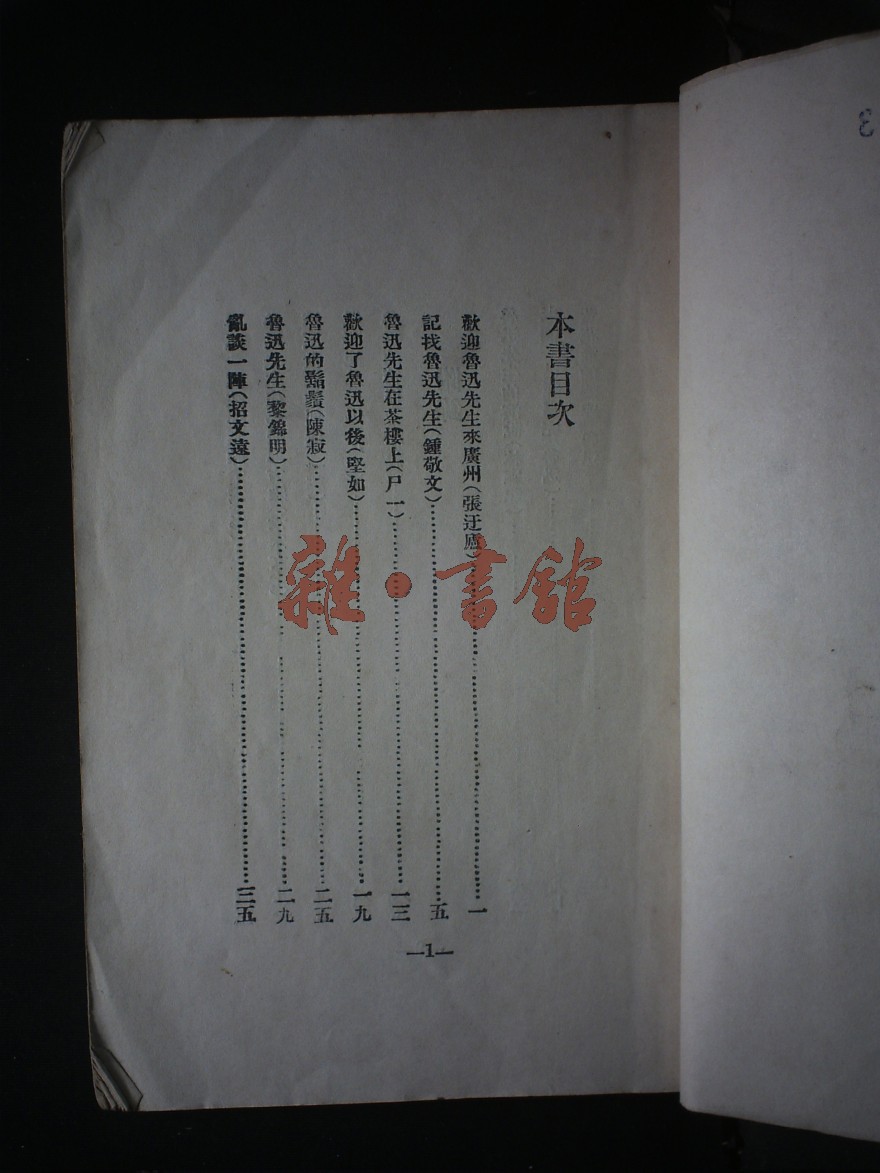 本書目次
歡迎魯迅先生來廣州(張迂廬)……一
記找魯迅先生(鍾敬文)……五
魯迅先生在茶樓上(尸一)……一三
歡迎了魯迅以後(堅如)……一九
魯迅的鬍鬚(陳寂)……二五
魯迅先生(黎錦明)……二九
亂談一陣(招文遠)……三五
—1—
雜·書館
3